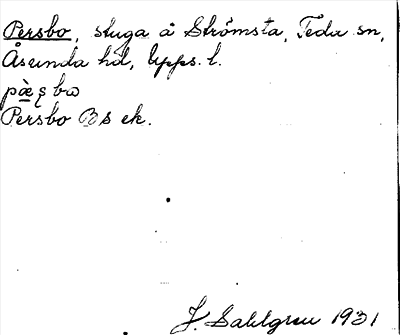 Persbo, stuga å Strömsta, Teda sn,
Åsunda hd, Upps. l.
Persbo Bs ek.
J. Sahlgren 1931